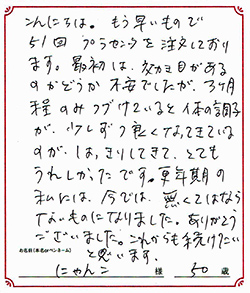 こんにちは。もう早いもので
51回 プラセンタを注文しており
ます。最初は、効き目がある
のかどうか不安でしたが、3ヶ月
程のみつづけていると体の調子
が、少しずつ良くなってきている
のが、はっきりしてきて、とても
うれしかったです。更年期の
私には、今では、無くてはなら
ないものになりました。ありがとう
ございました。これからも続けたい
と思います。
お名前(本名orペンネーム)
にゃんこ 様 50 歳